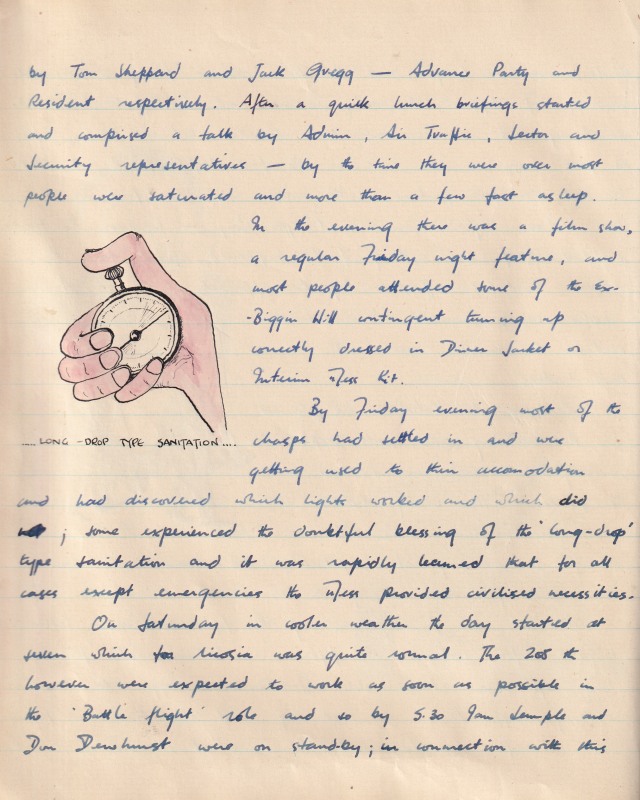 by Tom Sheppard and Jack Gregg — Advance Party and
Resident respectively. After a quick lunch briefings started
and comprised a talk by Admin, Air Traffic, Sector and
Security representatives — by the time they were over most
people were saturated and more than a few fast asleep.
In the evening there was a film show,
a regular Friday night feature, and
most people attended some of the Ex-
-Biggin Hill contingent turning up
correctly dressed in Dinner Jacket or
Interim Mess Kit.
By Friday evening most of the
chaps had settled in and were
getting used to their accomodation
.....LONG-DROP TYPE SANITATION....
and had discovered which lights worked and which did
; some experienced the doubtful blessing of the 'long-drop'
type sanitation and it was rapidly learned that for all
cases except emergencies the Mess provided civilised necessities.
On Saturday in cooler weather the day started at
seven which for Nicosia was quite normal. The 208 th
however were expected to work as soon as possible in
the 'Battle flight' role and so by 5.30 Ian Semple and
Don Dewhurst were on stand-by; in connection with this